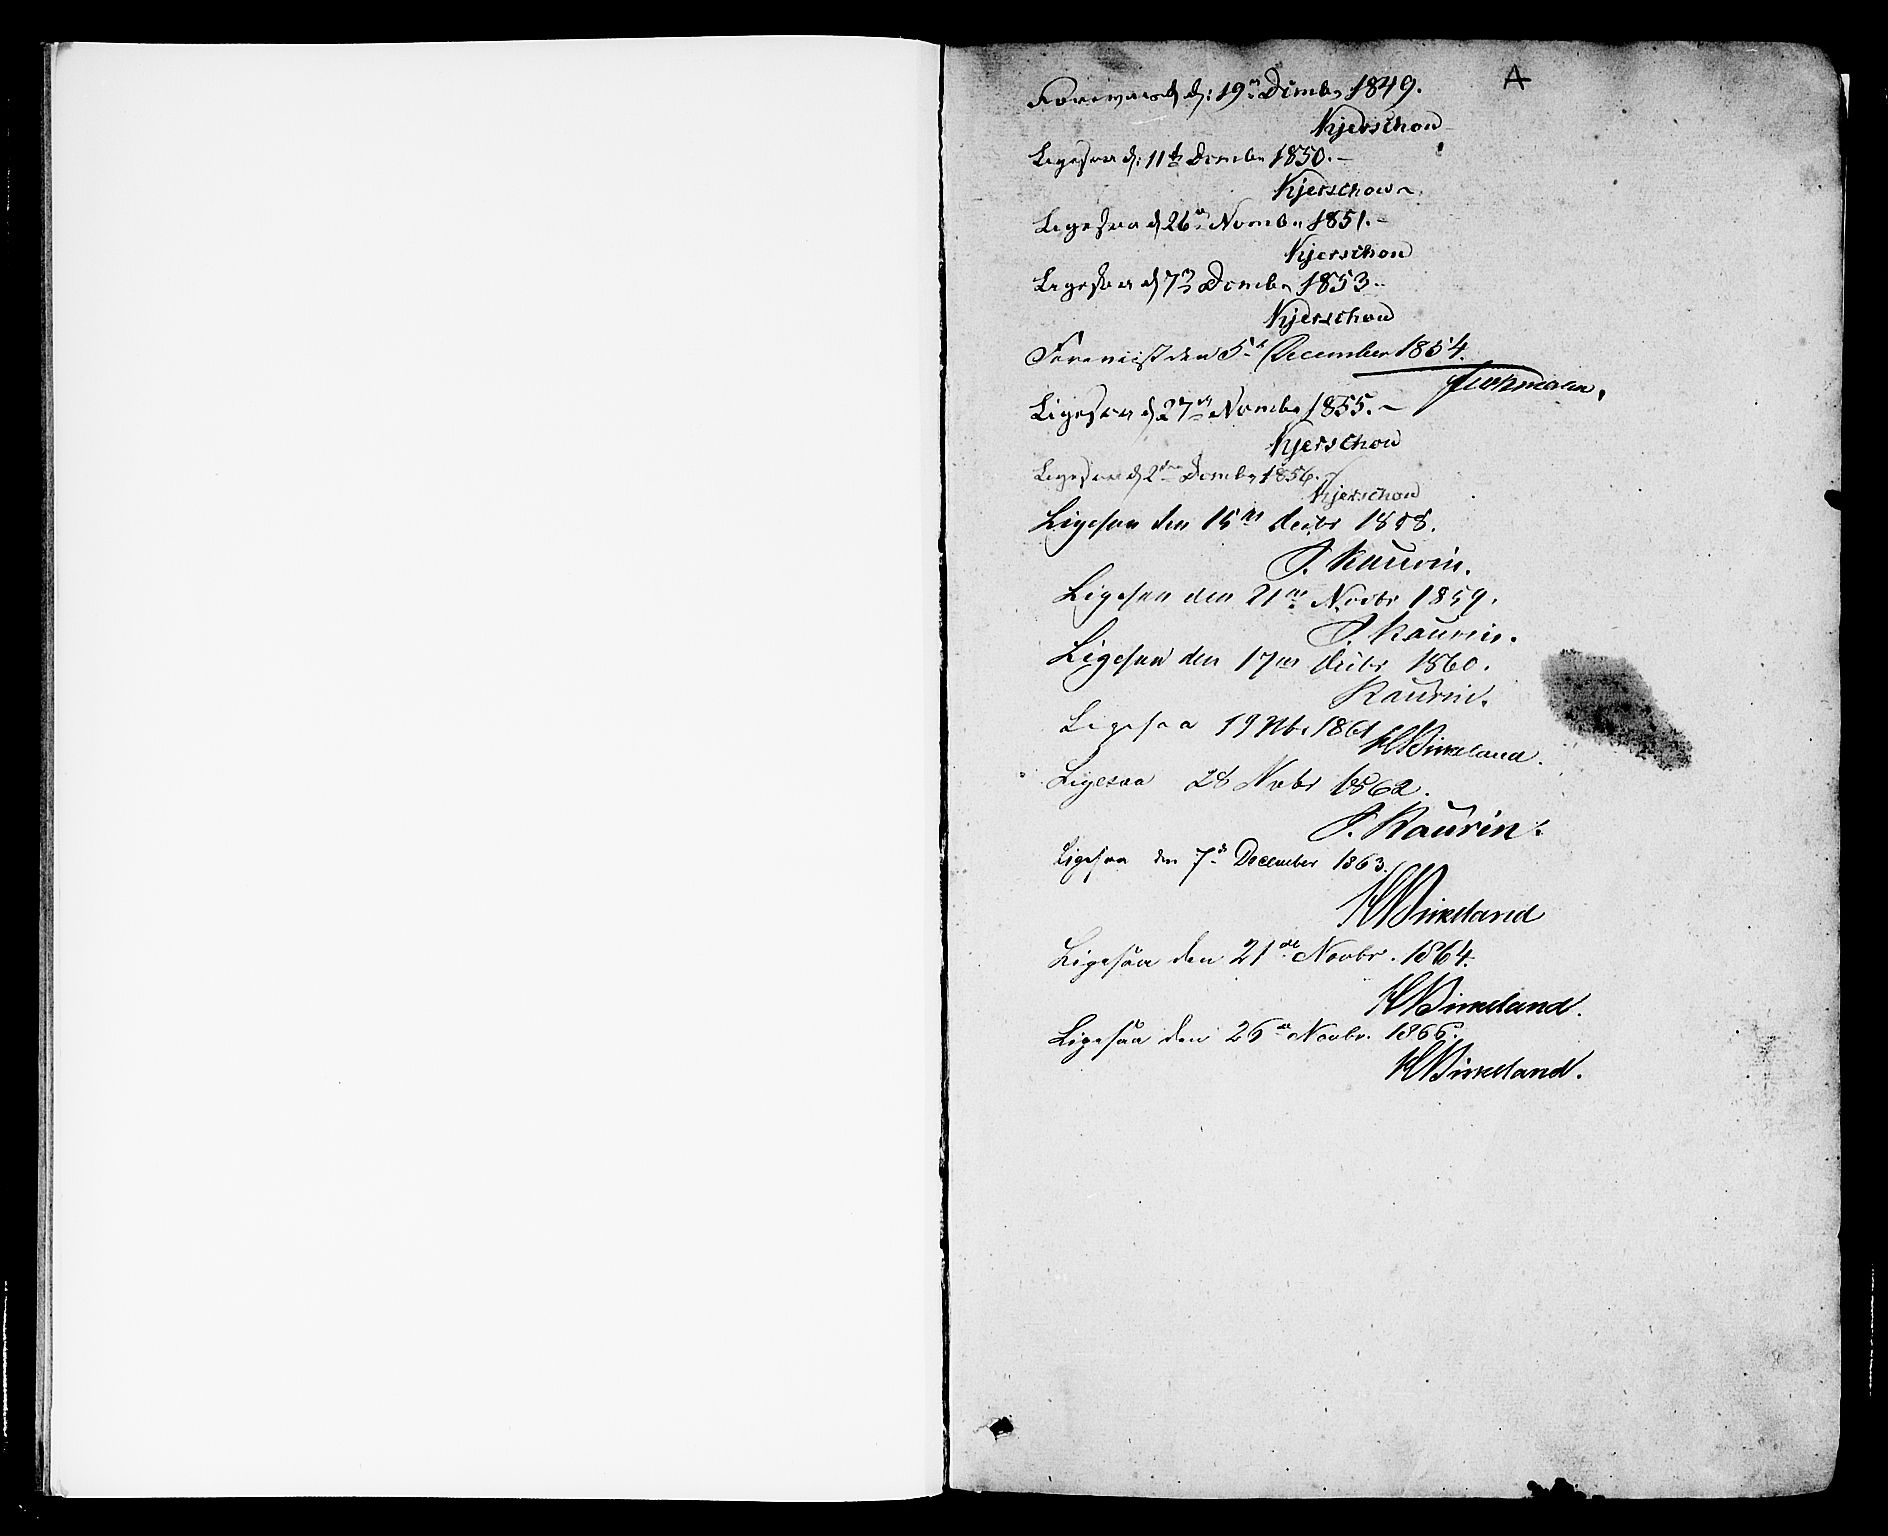 A
Foreviist d: 19de Decembr 1849.
Kjerschow
Ligesaa d: 11te Decembr 1850.
Kjerschow
Ligesaa d 26de Novembr 1851.
Kjerschow
Ligesaa d 7de Decembr 1853
Kjerschow
Foreviist den 5te December 1854.
Ligesaa d 27de Novembr 1855.
Kjerschow
Ligesaa d 2den Decembr 1856.
Kjerschow
Ligesaa den 15de Decbr 1858.
J. Kaurin.
Ligesaa den 21de Novbr 1859.
J. Kaurin.
Ligesaa den 17de Decbr 1860.
Kaurin.
Ligesaa 19 Nbr 1861
H Birkeland.
Ligesaa 28 Novbr 1862.
J. Kaurin.
Ligesaa den 7de December 1863.
H Birkeland
Ligesaa den 21de Novbr. 1864.
H Birkeland.
Ligesaa den 26de Novbr. 1866.
H Birkeland.